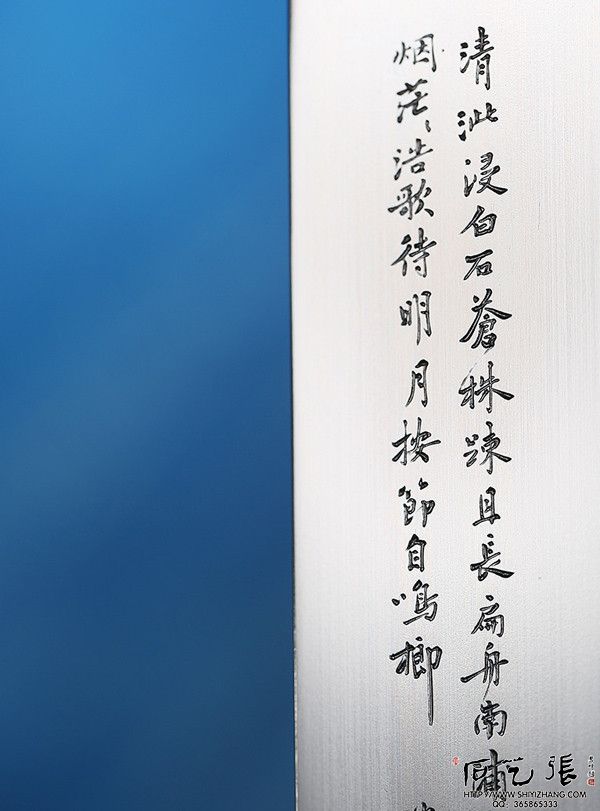 清沘浸白石蒼株踈且長扁舟南浦
烟茫〻浩歌待明月按節自鳴榔
張
HTTP://WWW.SHIYIZHANG.COM
QQ: 365865333